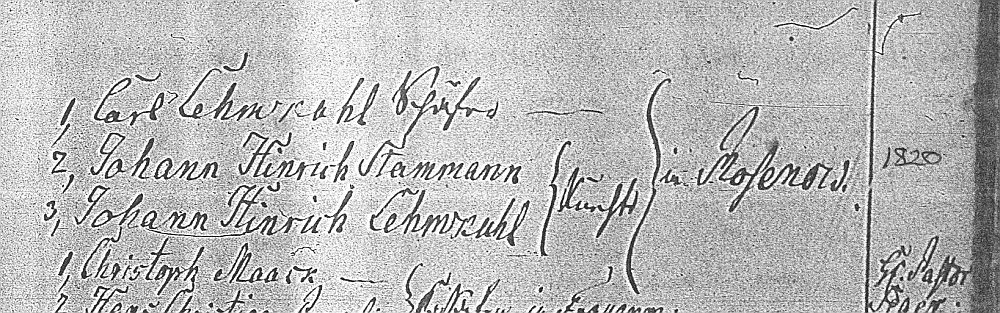 1, Carl Lehmkuhl Schäfer
2, Johann Hinrich Stammann
3, Johann Hinrich Lehmkuhl
Knechte
in Rosenow.
1820
1, Christoph Maack
H. Pastor
2, Hans Christian